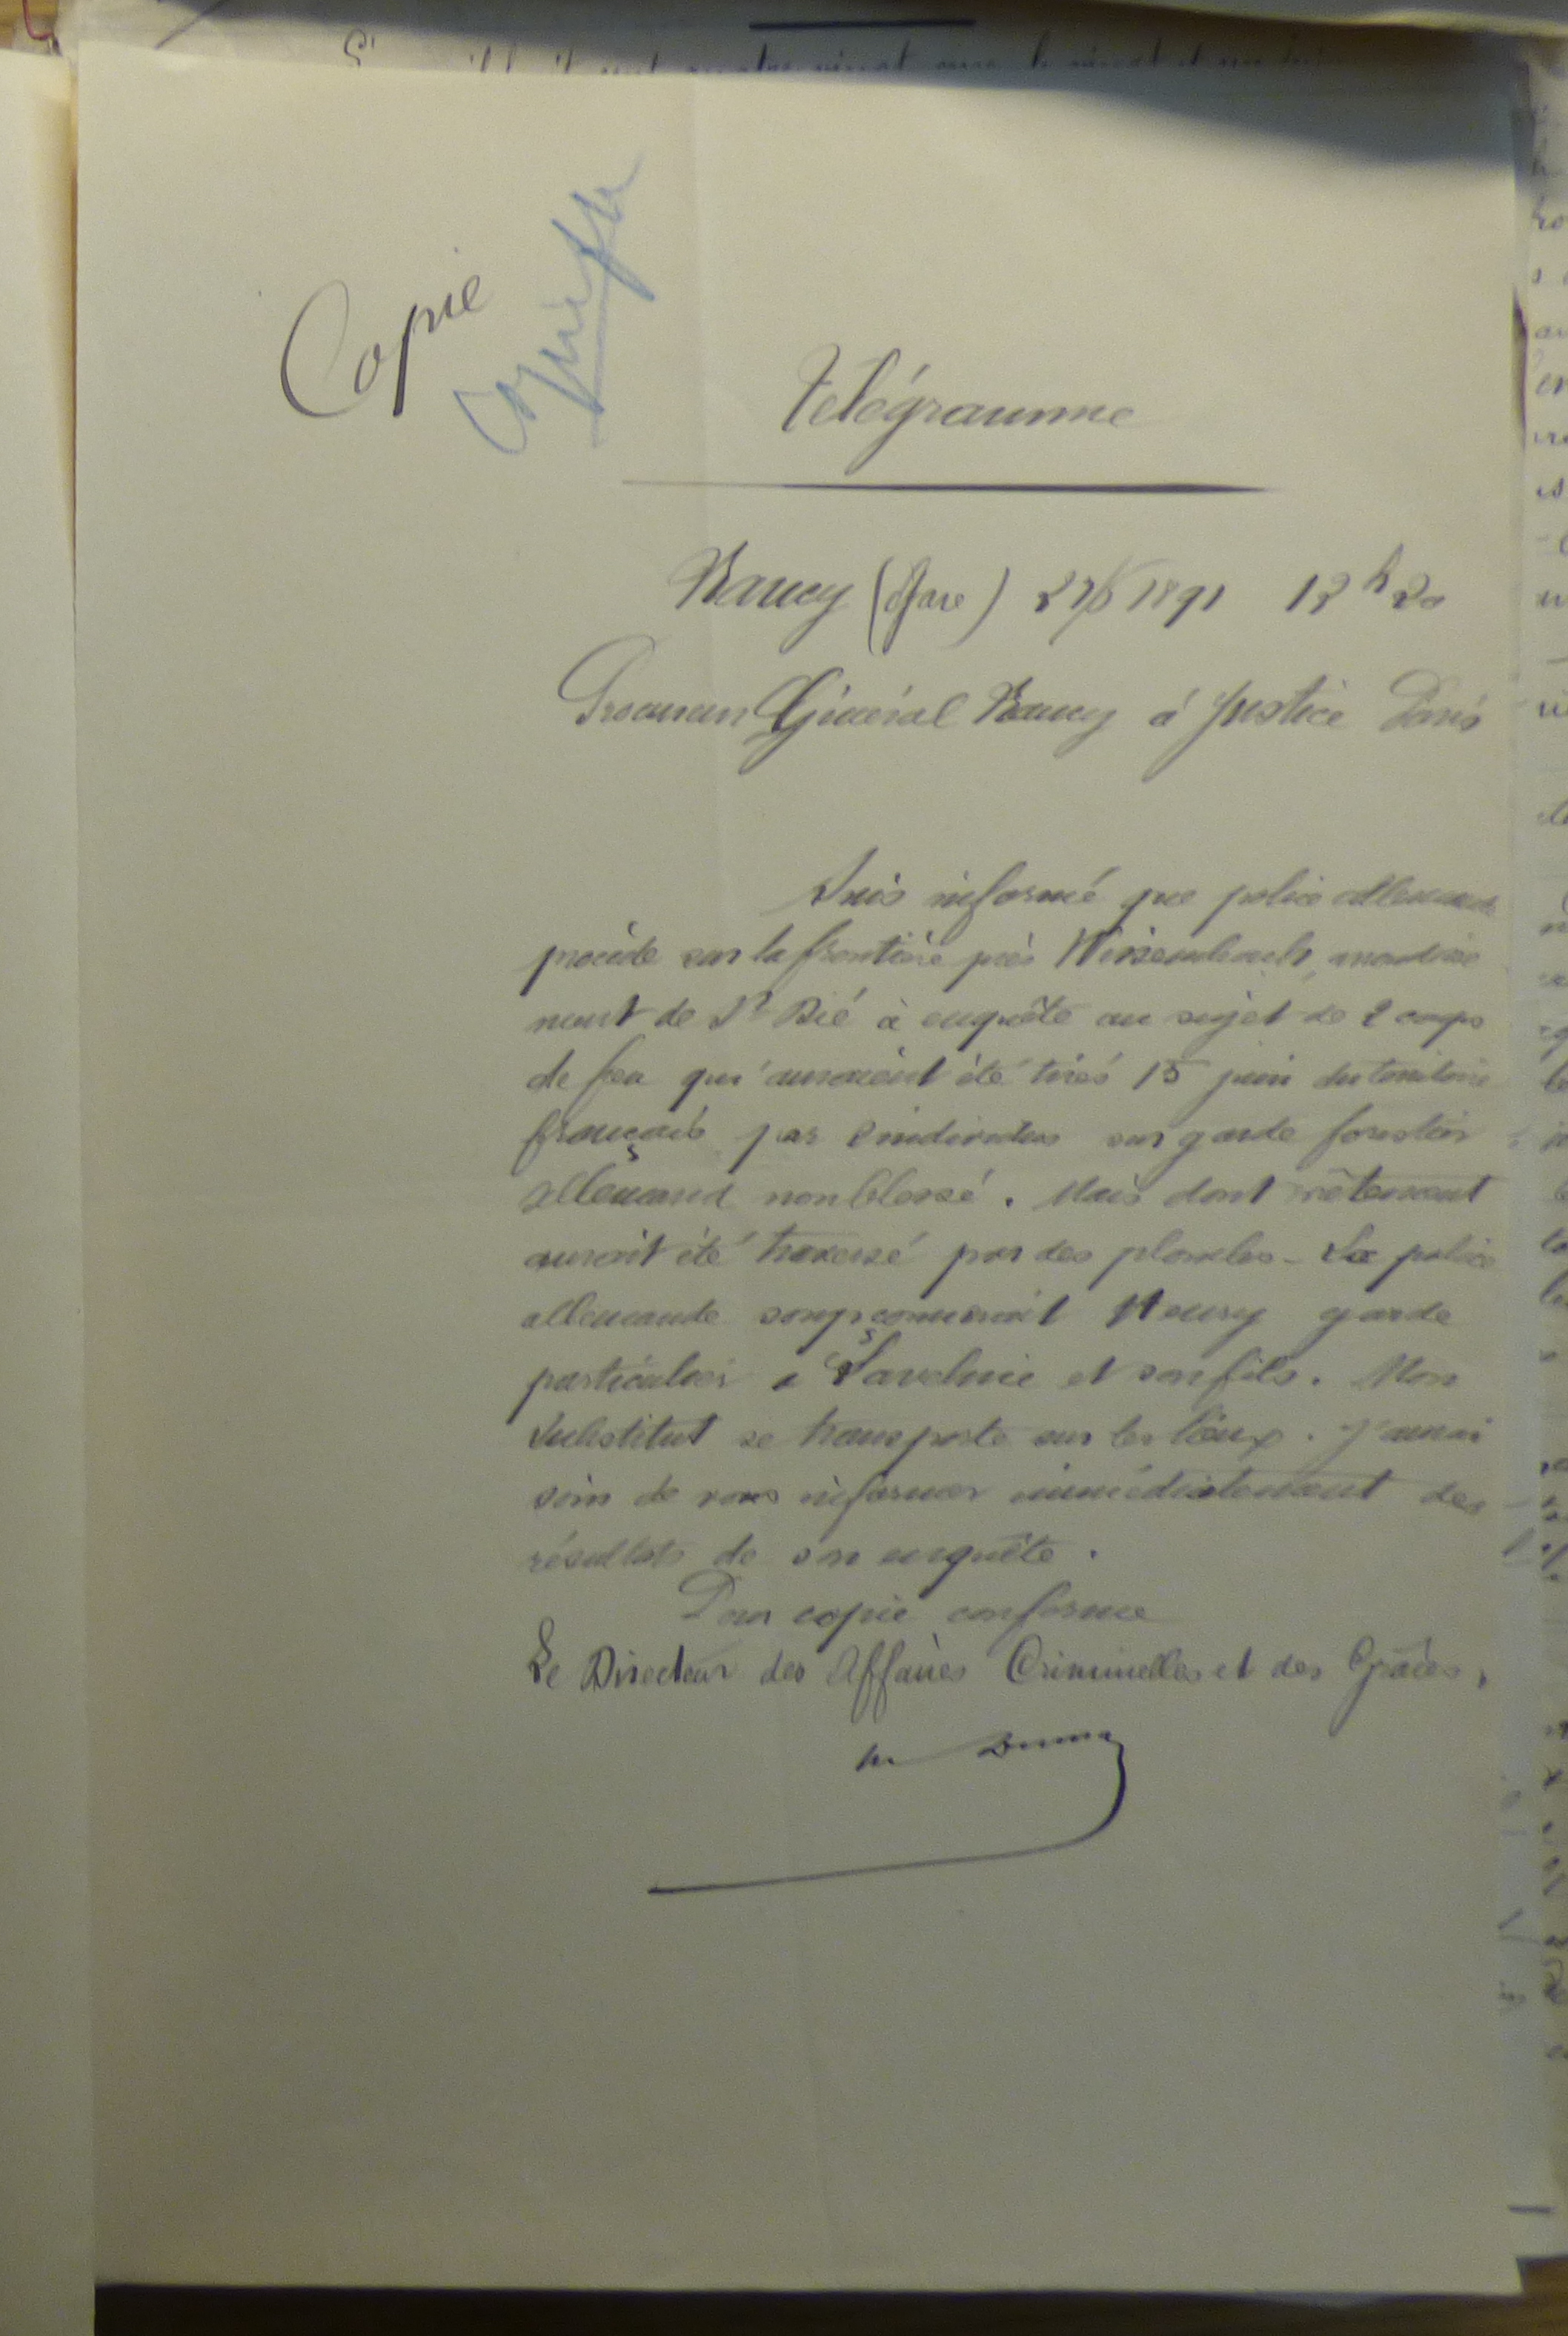 Copie
Copie
Télégramme
Nancy (Gare) 27/6 1891 12h20
Procureur Général Nancy à Justice Paris
Suis informé que police allemande
procède sur la frontière près Wissembach, arrondisse
ment de St Dié à enquête au sujet de 2 coups
de feu qui auraient été tirés 15 juin du territoire
français par 2 individus sur garde forestier
allemand non blessé. Mais dont vêtement
aurait été traversé par des plombs - La police
allemande soupçonnerait Houry garde
particulier à Laveline et son fils. Mon
Substitut se transporte sur les lieux. J'aurai
soin de vous informer immédiatement des
résultats de son enquête.
Pour copie conforme
Le Directeur des Affaires Criminelles et des Grâces,